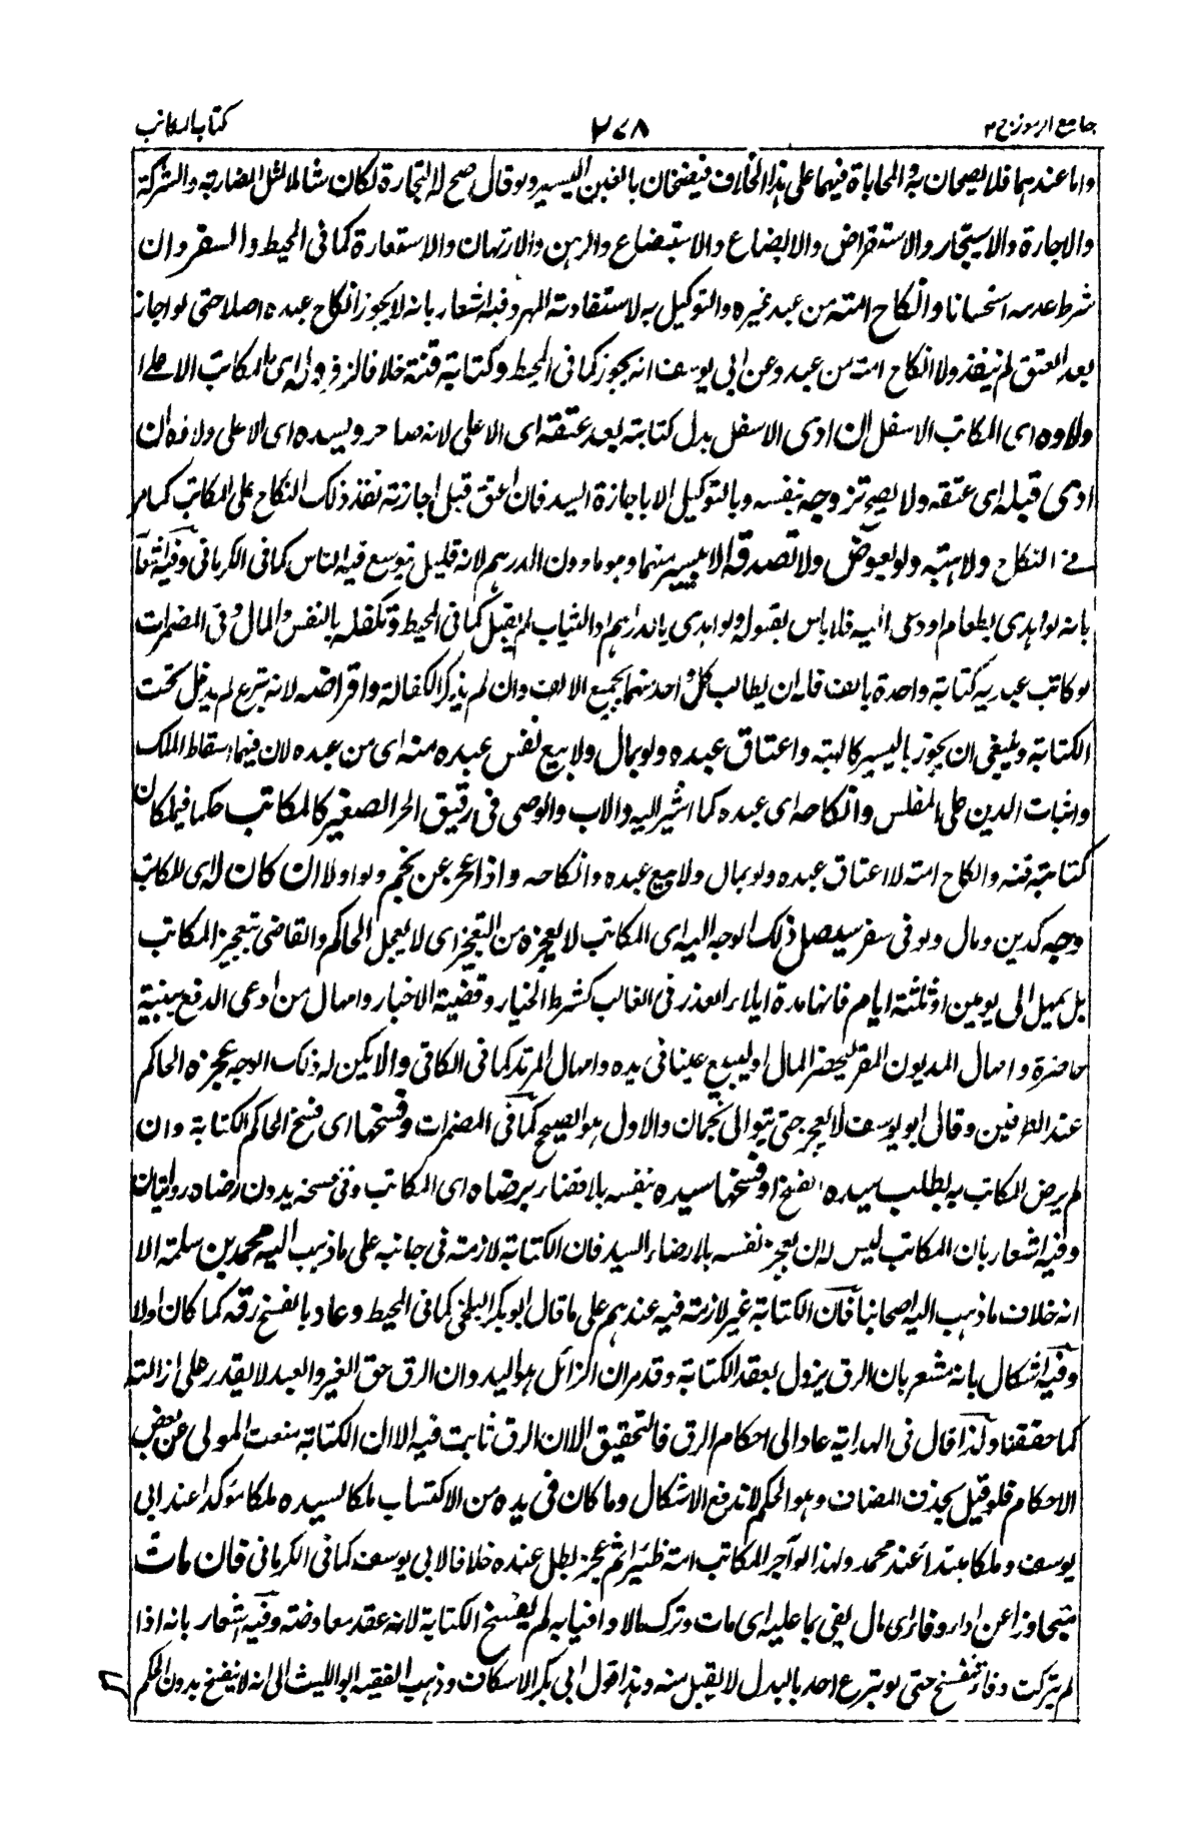 جامع الرموز ج ٢ ٢٧٨ كتاب المكاتب
واما عندهما فلا يصحان به والمحاباة فيهما على هذا الخلاف فيفضخان بالغبن اليسير ولو قال صح له التجارة لكان شاملا لمثل المضاربة والشركة
والاجارة والاستيجار والاستقراض والابضاع والاستبضاع والرهن والارتهان والاستعارة كما فى المحيط والسفر وان
شرط عدمه استحسانا وانكاح امته من عبد غيره والتوكيل به لاستفادته المهر وفيه اشعار بانه لا يجوز انكاح عبده اصلا حتى لو اجاز
بعد العتق لم ينفذ ولا انكاح امته من عبده وعن ابى يوسف انه يجوز كما فى المحيط وكتابة قنه خلافا لزفر وله اى للمكاتب الاعلى
ولاؤه اى المكاتب الاسفل ان ادى الاسفل بدل كتابته بعد عتقه اى الاعلى لانه صار حرا ولسيده اى الاعلى ولاؤه ان
ادى قبله اى عتقه ولا يصح تزوجه بنفسه وبالتوكيل الا باجازة السيد فان اعتق قبل اجازته نفذ ذلك النكاح على المكاتب كما مر
فى النكاح ولا هبته ولو بعوض ولا تصدقه الا بيسير منهما وهو ما دون الدرهم لانه قليل يتوسع فيه الناس كما فى الكرمانى وفيه اشعار
بانه لو اهدى بطعام او دعى اليه فلا باس بقبوله ولو اهدى بالدراهم او الثياب لم يقبل كما فى المحيط وتكفله بالنفس والمال وفى المضمرات
لو كاتب عبديه كتابة واحدة بالف فله ان يطالب كل واحد منهما بجميع الالف وان لم يذكر الكفالة واقراضه لانه تبرع لم يدخل تحت
الكتابة وينبغى ان يجوز باليسير كالهبة واعتاق عبده ولو بمال ولا بيع نفس عبده منه اى من عبده لان فيهما اسقاط الملك
واثبات الدين على المفلس وانكاحه اى عبده كما اشير اليه والاب والوصى فى رقيق الحر الصغير كالمكاتب حكما فيملكان
كتابة قنه وانكاح امته لا اعتاق عبده ولو بمال ولا بيع عبده وانكاحه واذا عجز عن نجم ولو اولا ان كان له اى للمكاتب
وجه كدين ومال ولو فى سفر سيصل ذلك الوجه اليه اى المكاتب لا يعجزه من التعجيز اى لا يعجل الحاكم والقاضى تعجيز المكاتب
بل يمهل الى يومين او ثلثة ايام فانها مدة ابلاء العذر فى الغالب كشرط الخيار وقضية الاخبار وامهال من ادعى الدفع ببينة
حاضرة وامهال المديون المقر ليحضر المال او ليبيع عينا فى يده وامهال المرتد كما فى الكافى والا يكن له ذلك الوجه عجزه الحاكم
عند الطرفين وقال ابو يوسف لا يعجز حتى يتوالى نجمان والاول هو الصحيح كما فى المضمرات وفسخها اى فسخ الحاكم الكتابة وان
لم يرض المكاتب به بطلب سيده الفسخ او فسخها سيده بنفسه بلا قضاء برضاه اى المكاتب وفى فسخه بدون رضاه روايتان
وفيه اشعار بان المكاتب ليس له ان يعجز نفسه بلا رضاء السيد فان الكتابة لازمة فى جانبه على ما ذهب اليه محمد بن سلمة الا
انه خلاف ما ذهب اليه اصحابنا فان الكتابة غير لازمة فيه عندهم على ما قال ابو بكر البلخى كما فى المحيط وعاد بالفسخ رقه كما كان اولا
وفيه اشكال بانه مشعر بان الرق يزول بعقد الكتابة وقد مر ان الزائل هو اليد وان الرق حق الغير والعبد لا يقدر على ازالته
كما حققنا ولذا قال فى الهداية عاد الى احكام الرق فالتحقيق الان الرق ثابت فيه الا ان الكتابة منعت المولى عن بعض
الاحكام فلو قيل بحذف المضاف وهو الحكم لاندفع الاشكال وما كان فى يده من الاكتساب ملكا لسيده ملكا مؤكدا عند ابى
يوسف وملكا مبتدا عند محمد ولهذا لو آجر المكاتب امته ظئرا ثم عجز بطل عنده خلافا لابى يوسف كما فى الكرمانى فان مات
متجاوزا عن اداء وفاء اى مال يفى بما عليه اى مات وترك مالا وافيا به لم يفسخ الكتابة لانه عقد معاوضة وفيه اشعار بانه اذا
لم يترك وفاء تنفسخ حتى لو تبرع احد بالبدل لا يقبل منه وهذا قول ابى بكر الاسكاف وذهب الفقيه ابو الليث الى انه لا ينفسخ بدون الحكم